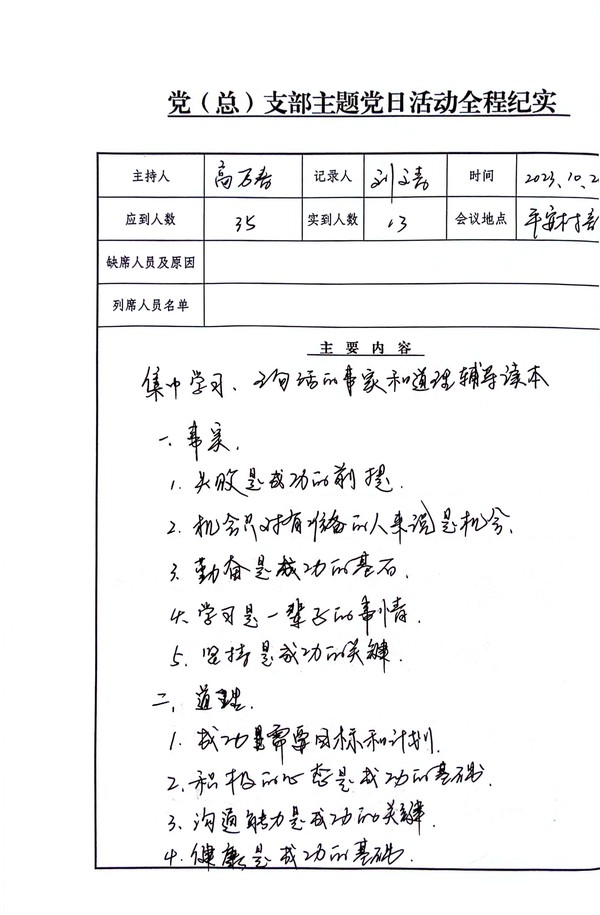 党（总）支部主题党日活动全程纪实
主持人 高万春 记录人 刘文喜 时间 2023.10.2
应到人数 35 实到人数 13 会议地点 平安村
缺席人员及原因
列席人员名单
主要内容
集中学习、 话的事实和道理辅导读本
一、事实.
1. 失败是成功的前提.
2. 机会只对有准备的人来说是机会.
3. 勤奋是成功的基石.
4. 学习是一辈子的事情.
5. 坚持是成功的关键.
二、道理.
1. 成功是需要目标和计划.
2. 积极的心态是成功的基础.
3. 沟通能力是成功的关键.
4. 健康是成功的基础.